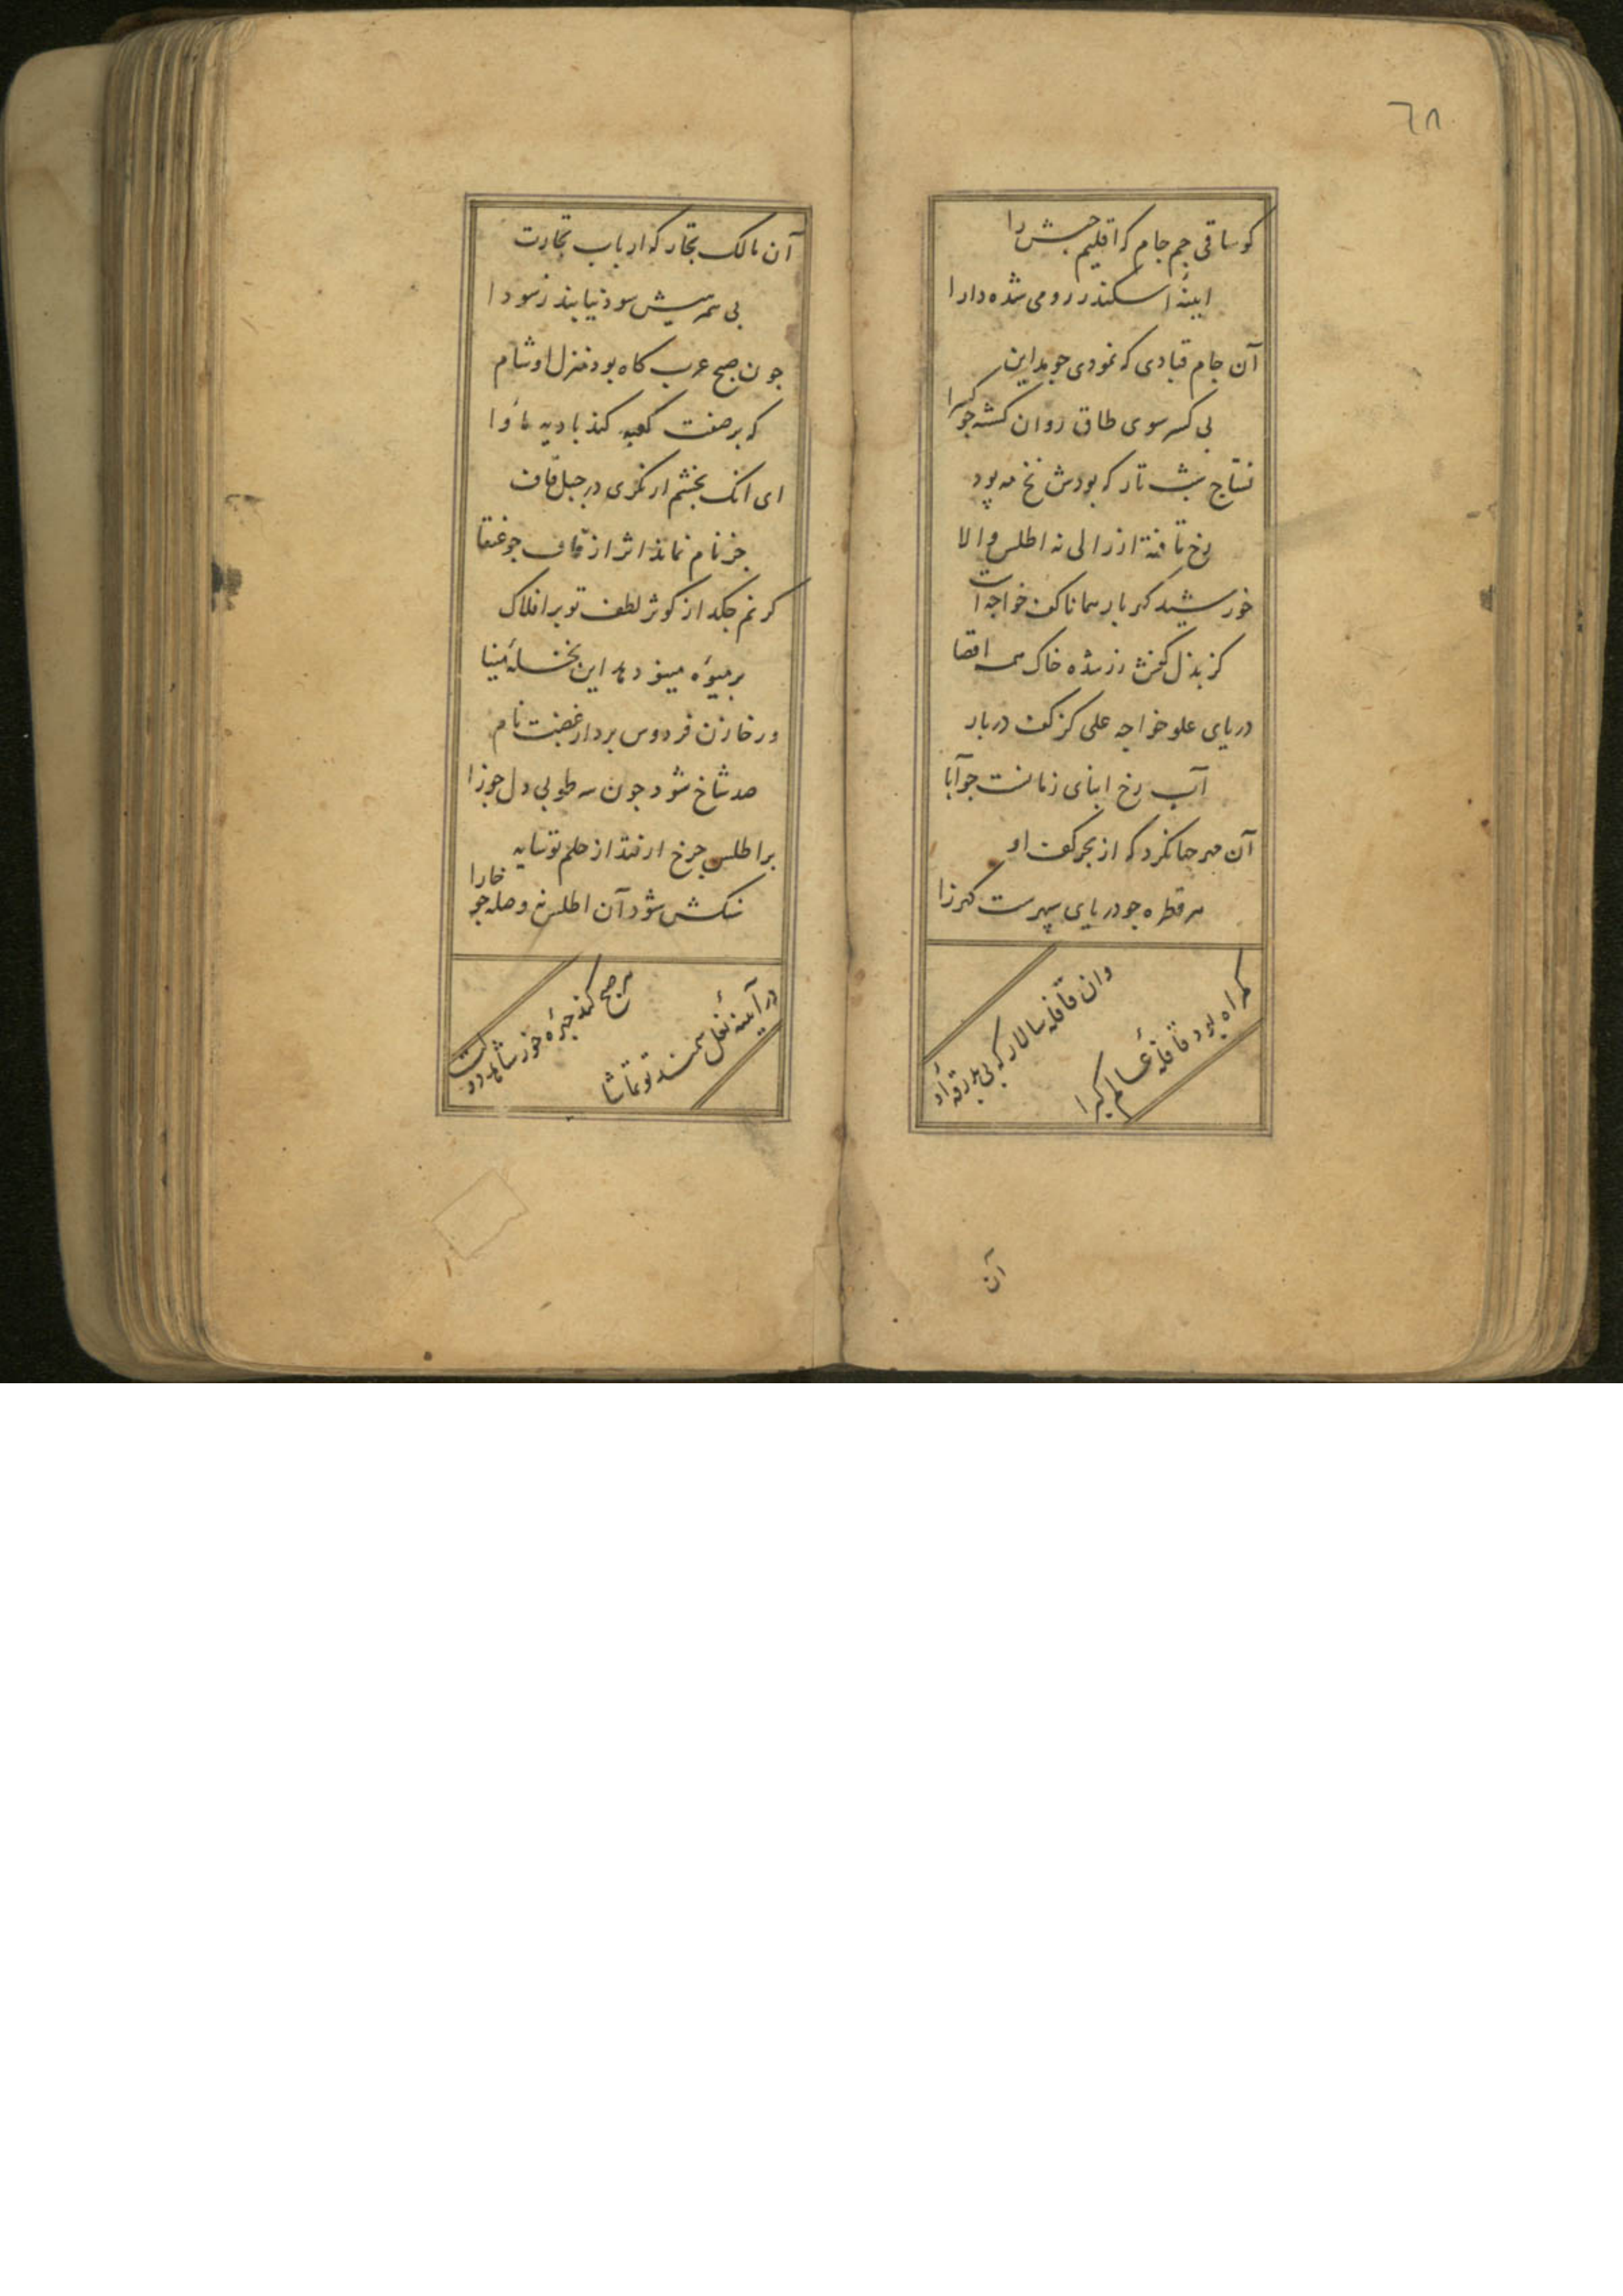 ٦٨
کو ساقی جم جام که اقلیم حبش را
ایینهٔ اسکندر رومی شده دارا
آن جام قبادی که نمودی جو مداین
بی کسر سوی طاق روان کشته جو کسرا
نساج شب تار که بودش نخ مه پود
رخ تافته از زالی نه اطلس والا
خورشید کهربار همانا کف خواجه است
کز بذل کفش زر شده خاک همه اقصا
دریای علو خواجه علی کز کف دربار
آب رخ ابنای زمانست جو آبا
آن مهر جهانکرد که از بحر کف او
هر قطره جو دریای سپهرست کهرزا
وان قافله سالار که بی بدرقهٔ او
کمراه بود قافلهٔ عالم کبرا
آن
آن مالک تجار که ارباب تجارت
بی سود نیابند ز سودا
جون صبح عرب کاه بود منزل او شام
که بر صفت کعبه کند بادیه ماوا
ای انک بخشم ار نکری در جبل قاف
جز نام نماند اثر از قاف جو عنقا
کر نم جکد از کوثر لطف تو بر افلاک
بر میوهٔ مینو دهد این نخلهٔ مینا
ور خازن فردوس برد از غضبت نام
صد شاخ شود جون سه طوبی دل جوزا
بر اطلس جرخ ار فتد از حلم تو سایه
سنکش شود آن اطلس نه وصله جو خارا
هر صبح کند جهرهٔ خود شاهد
در آینهٔ نعل سمند تو تماشا